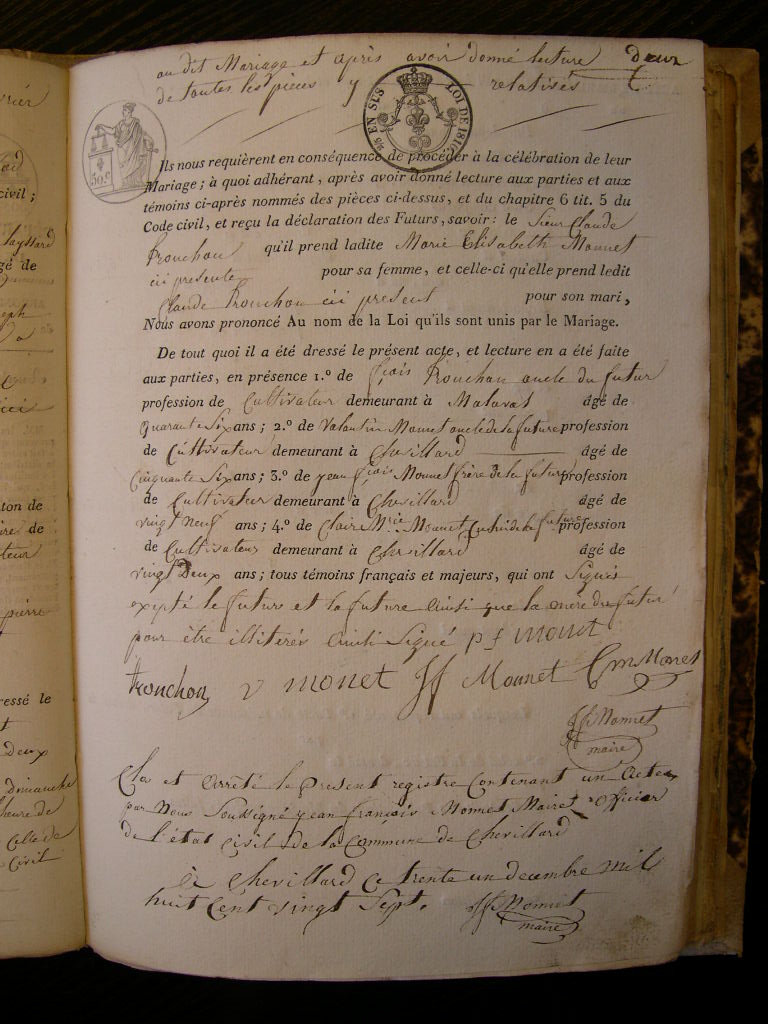 au dit Mariage et après avoir donné lecture deux
de toutes les pièces y relatives
95 EN SUS LOI DE 1816
50 c
Ils nous requièrent en conséquence de procéder à la célébration de leur
Mariage ; à quoi adhérant, après avoir donné lecture aux parties et aux
témoins ci-après nommés des pièces ci-dessus, et du chapitre 6 tit. 5 du
Code civil, et reçu la déclaration des Futurs, savoir : le Sieur Claude
Tronchon qu'il prend ladite Marie Elisabeth Monnet
ici presente pour sa femme, et celle-ci qu'elle prend ledit
Claude Tronchon ici present pour son mari,
Nous avons prononcé Au nom de la Loi qu'ils sont unis par le Mariage.
De tout quoi il a été dressé le présent acte, et lecture en a été faite
aux parties, en présence 1.º de fçois Tronchon oncle du futur
profession de Cultivateur demeurant à Malaval âgé de
quarante six ans ; 2.º de Valantin Monnet oncle de la future profession
de Cultivateur demeurant à Chevillard âgé de
Cinquante Six ans ; 3.º de jean fçois Monnet frère de la future profession
de Cultivateur demeurant à Chevillard âgé de
vingt neuf ans ; 4.º de Claire Mie Monnet de la future profession
de Cultivateur demeurant à Chevillard âgé de
vingt Deux ans ; tous témoins français et majeurs, qui ont Signés
exepté le future et la future ainsi que la mere du futur
pour être illiterés ainsi Signé p f monet
tronchon v monet JF Monnet C m Monet
JF Monnet
maire
Clos et Arrêté le present registre Contenant un Acte
par Nous Soussigné jean françois Monnet Maire Officier
de l'état Civil de la Commune de Chevillard
à Chevillard Ce trente un decembre mil
huit Cent vingt Sept. JF Monnet
maire
vrier
civil ;
gé de
ton de
ire de
teur
pierre
ressé le
Deux
dimanche
heure de
Celle de
Civil